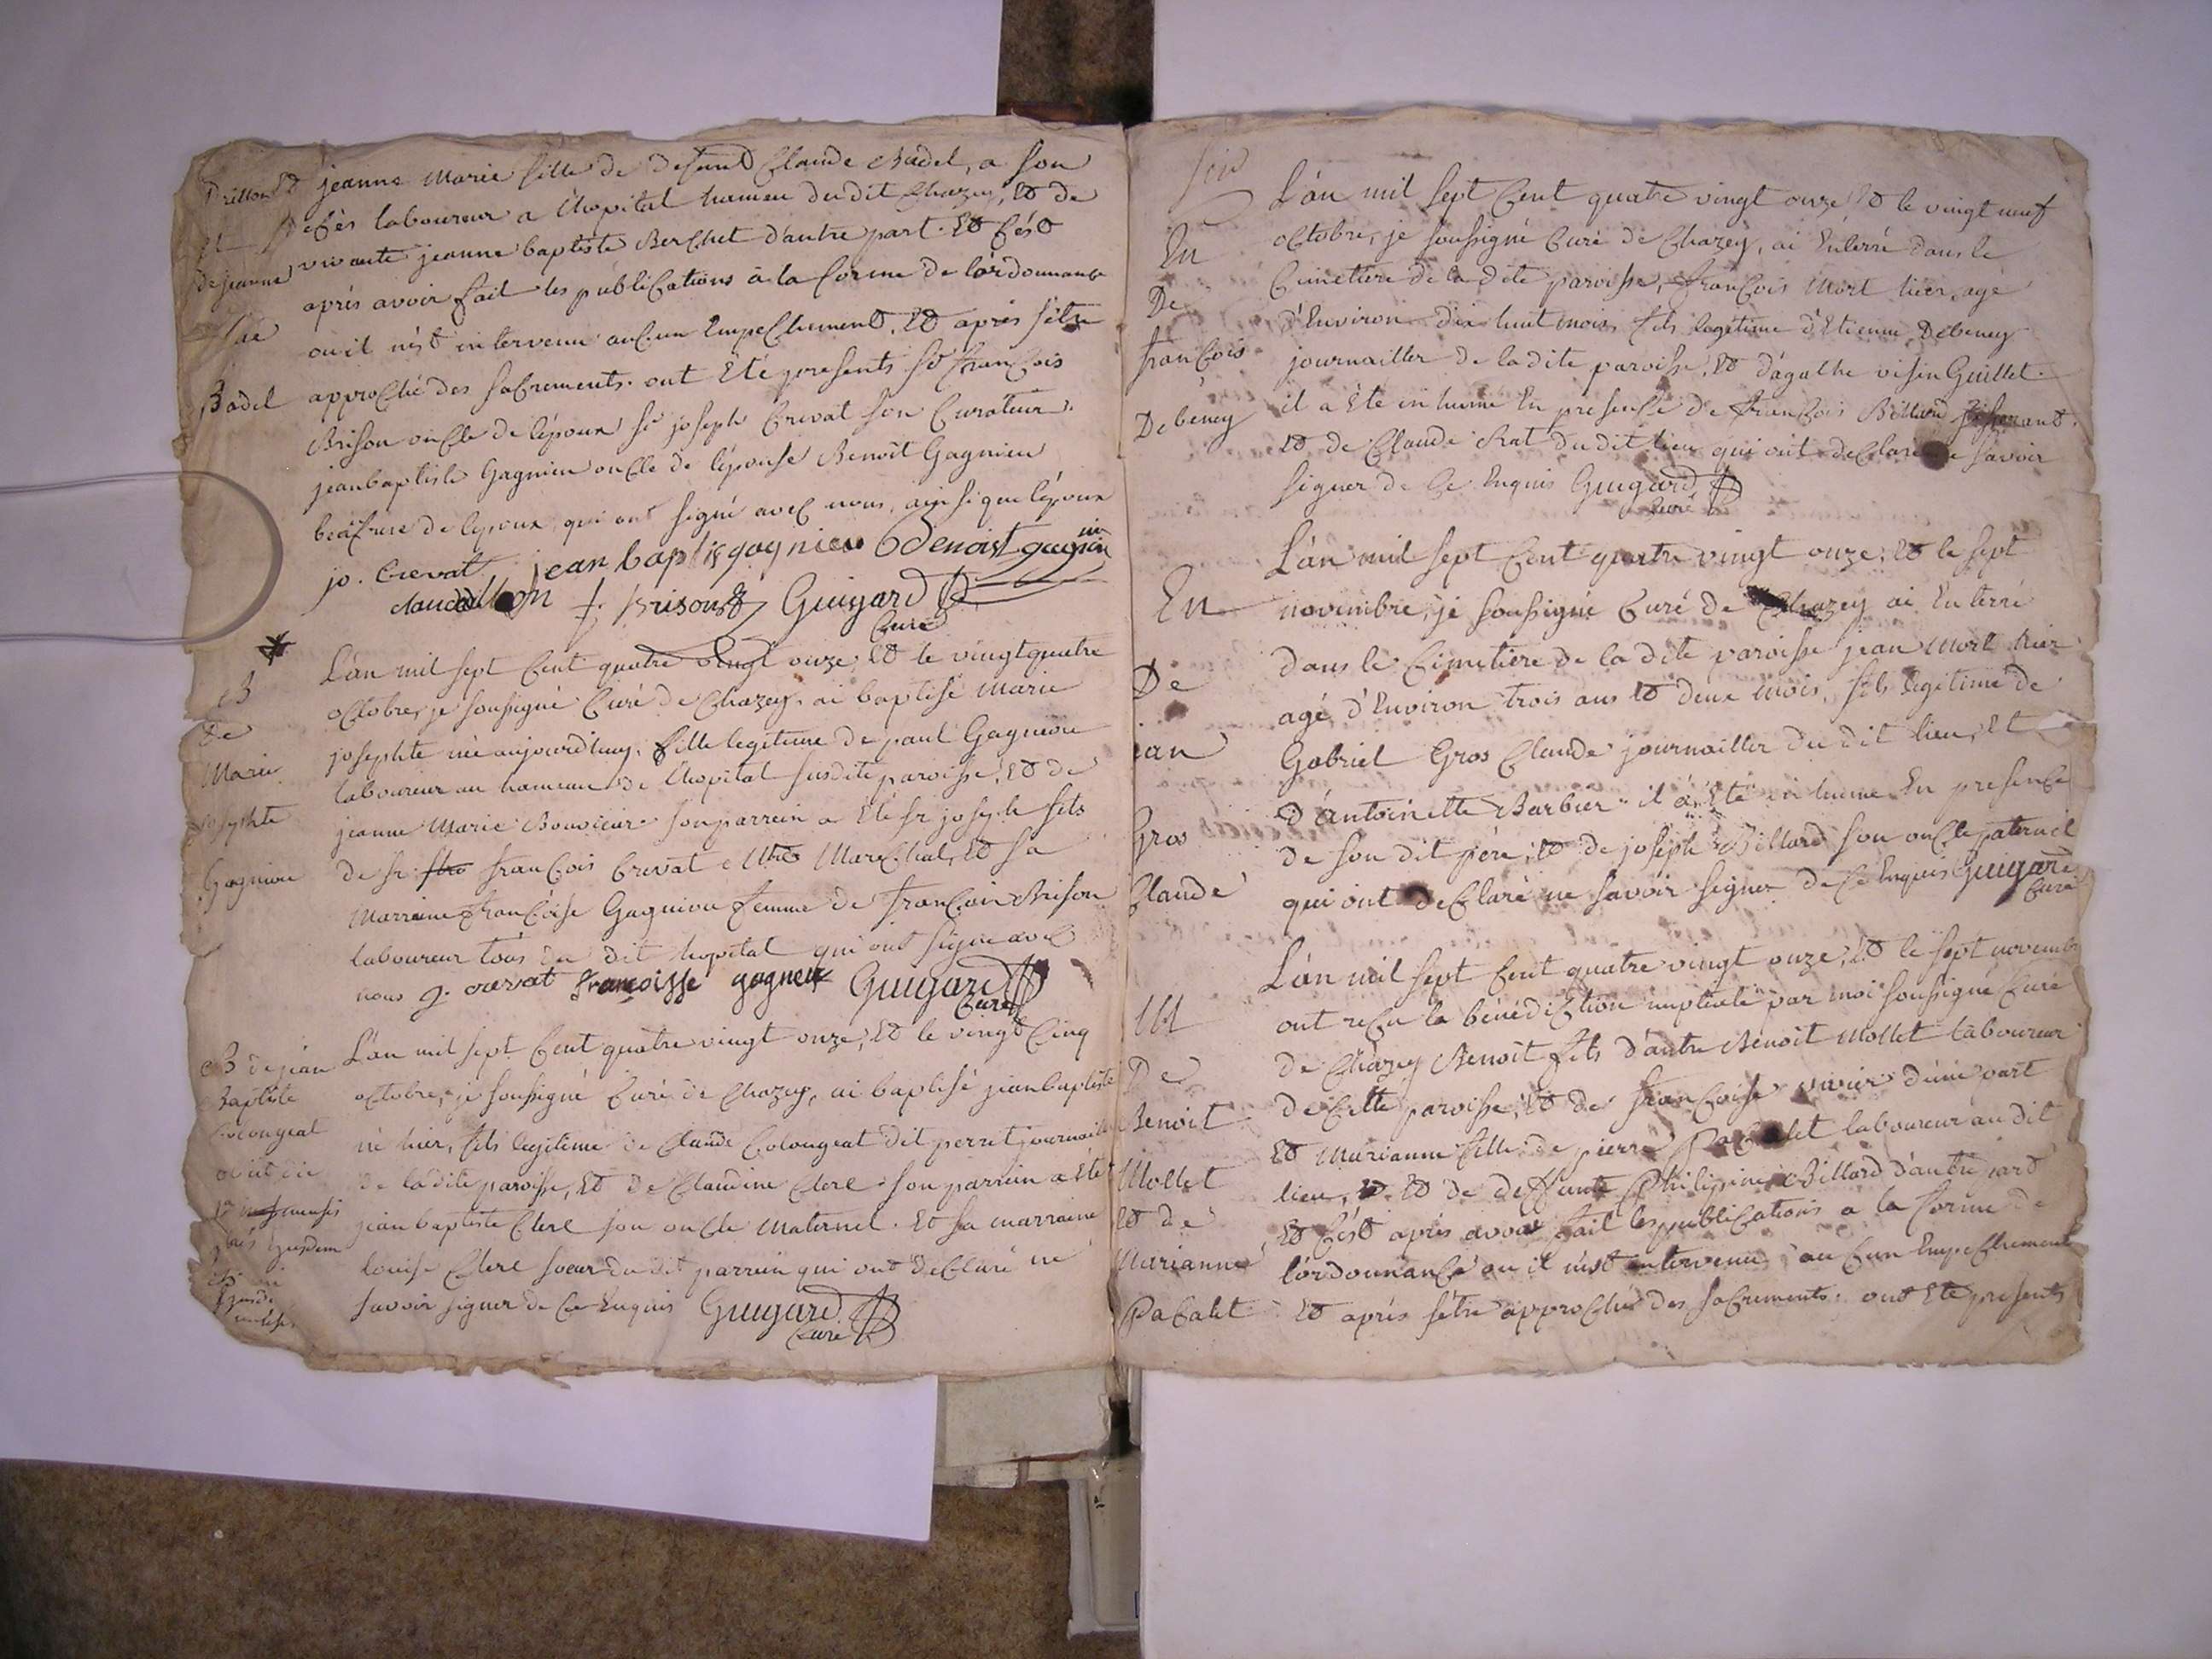 Drillon
Et
de jeanne
Badel
Et jeanne Marie fille de defunt Claude Badel, a son
decès laboureur a l'hopital hameau du dit Chazey, Et de
vivante jeanne baptiste Berchet d'autre part. Et c'est
aprés avoir fait les publications a la forme de l'ordonnance
ou il n'est intervenu aucun Empechement, Et aprés s'etre
approché des sacrements. ont Eté presents sr francois
Brison oncle de l'epoux sr joseph Crevat son Curateur.
jeanbaptiste Gagnieu oncle de l'epouse Benoît Gagnieu
beaufrere de l'epoux, qui ont signé avec nous, ainsi que l'epoux
jo. Crevat jean baptis gagnieu Benoist gagnieu
claude f. Brison Guigard
Curé
B
de
Marie
josephte
Gagniou
L'an mil sept Cent quatre vingt onze, Et le vingtquatre
octobre, je soussigné Curé de Chazey, ai baptisé Marie
josephte née aujourdhuy, fille legitime de paul Gagniou
laboureur au hameau de l'hopital susdite paroisse, Et de
jeanne Marie Bouvieur son parrein a Eté sr joseph fils
de sr francois Crevat Me Marechal, Et sa
Marraine francoise Gagniou femme de francois Brison
laboureur tous du dit hopital qui ont signé avec
nous j. crevat francoisse gagneux Guigard
Curé
B de jean
Baptiste
Colongeat
obiit die
L'an mil sept Cent quatre vingt onze, Et le vingt Cinq
octobre, je soussigné Curé de Chazey, ai baptisé jeanbaptiste
né hier, fils legitime de Claude Colongeat dit perret journaill
de la dite paroisse, Et de Claudine Clerc. son parrein a Eté
jean baptiste Clerc son oncle maternel. Et sa marraine
louise Clerc soeur du dit parrein qui ont déclaré ne
savoir signer de ce Enquis Guigard
Curé
En
De
francois
Debeney
L'an mil sept Cent quatre vingt onze, Et le vingt neuf
octobre, je soussigné Curé de Chazey, ai Enterré dans le
Cimetiere de la dite paroisse, francois Mort hier, agé
d'Environ dix huit mois fils legitime d'Etienne Debeney
journailler de la dite paroisse, Et d'agathe visin Guillet.
il a Eté inhumé En presence de francois Billard
Et de Claude Rat du dit lieu qui ont declaré ne savoir
signer de Ce Enquis Guigard
Curé
En
De
jean
Gros
Claude
L'an mil sept Cent quatre vingt onze, Et le sept
novembre, je soussigné Curé de Chazey ai Enterré
dans le Cimetiere de la dite paroisse jean Mort hier
agé d'Environ trois ans Et deux mois, fils legitime de
Gabriel Gros Claude journailler du dit lieu, Et
d'Antoinette Barbier. il a Eté inhumé En presence
de son dit pére, Et de joseph Billard son oncle paternel
qui ont declaré ne savoir signer de Ce Enquis Guigard
Curé
M
De
Benoit
Mollet
Et de
Marianne
Pacalet
L'an mil sept Cent quatre vingt onze, Et le sept novembr
ont reçu la bénédiction nuptiale par moi soussigné Curé
de Chazey Benoît fils d'autre Benoît Mollet laboureur
de Cette paroisse, Et de francoise vivier d'une part
Et Marianne fille de pierre Pacalet laboureur au dit
lieu, Et de deffunte Philipine Billard d'autre part
Et c'est aprés avoir fait les publications a la forme de
l'ordonnance ou il n'est intervenu aucun Empechement
Et aprés s'etre approchés des sacrements. ont Eté presents